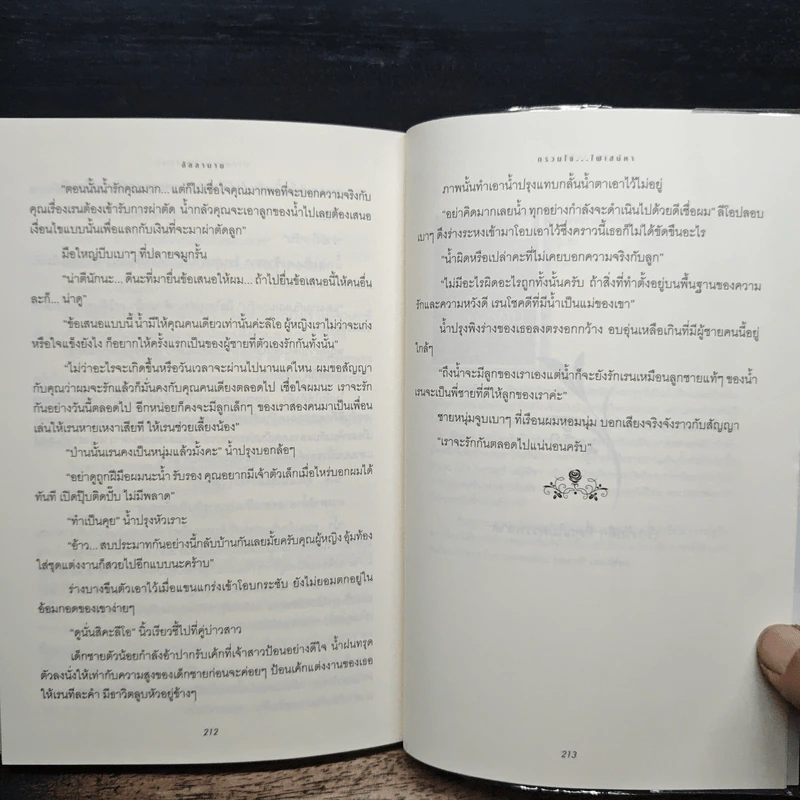 ลัลลานาย
"ตอนนั้นน้ำรักคุณมาก... แต่ก็ไม่เชื่อใจคุณมากพอที่จะบอกความจริงกับ
คุณเรื่องเรนต้องเข้ารับการผ่าตัด น้ำกลัวคุณจะเอาลูกของน้ำไปเลยต้องเสนอ
เงื่อนไขแบบนั้นเพื่อแลกกับเงินที่จะมาผ่าตัดลูก"
มือใหญ่บีบเบาๆ ที่ปลายจมูกรั้น
"น่าตีนักนะ... ดีนะที่มายื่นข้อเสนอให้ผม... ถ้าไปยื่นข้อเสนอนี้ให้คนอื่น
ละก็... น่าดู"
"ข้อเสนอแบบนี้ น้ำมีให้คุณคนเดียวเท่านั้นค่ะลีโอ ผู้หญิงเราไม่ว่าจะเก่ง
หรือใจแข็งยังไง ก็อยากให้ครั้งแรกเป็นของผู้ชายที่ตัวเองรักกันทั้งนั้น"
"ไม่ว่าอะไรจะเกิดขึ้นหรือวันเวลาจะผ่านไปนานแค่ไหน ผมขอสัญญา
กับคุณว่าผมจะรักแล้วก็มั่นคงกับคุณคนเดียวตลอดไป เชื่อใจผมนะ เราจะรัก
กันอย่างวันนี้ตลอดไป อีกหน่อยก็คงจะมีลูกเล็กๆ ของเราสองคนมาเป็นเพื่อน
เล่นให้เรนหายเหงาเสียที ให้เรนช่วยเลี้ยงน้อง"
"ป่านนั้นเรนคงเป็นหนุ่มแล้วมั้งคะ" น้ำปรุงบอกล้อๆ
"อย่าดูถูกฝีมือผมนะน้ำ รับรอง คุณอยากมีเจ้าตัวเล็กเมื่อไหร่บอกผมได้
ทันที เปิดปุ๊บติดปั๊บ ไม่มีพลาด"
"ทำเป็นคุย" น้ำปรุงหัวเราะ
"อ้าว... สบประมาทกันอย่างนี้กลับบ้านกันเลยมั้ยครับคุณผู้หญิง อุ้มท้อง
ใส่ชุดแต่งงานก็สวยไปอีกแบบนะคร้าบ"
ร่างบางขืนตัวเอาไว้เมื่อแขนแกร่งเข้าโอบกระชับ ยังไม่ยอมตกอยู่ใน
อ้อมกอดของเขาง่ายๆ
"ดูนั่นสิคะลีโอ" นิ้วเรียวชี้ไปที่คู่บ่าวสาว
เด็กชายตัวน้อยกำลังอ้าปากรับเค้กที่เจ้าสาวป้อนอย่างดีใจ น้ำฝนทรุด
ตัวลงนั่งให้เท่ากับความสูงของเด็กชายก่อนจะค่อยๆ ป้อนเค้กแต่งงานของเธอ
ให้เรนทีละคำ มีอาวิตลูบหัวอยู่ข้างๆ
212
กรวมใจ...ไฟเสน่หา
ภาพนั้นทำเอาน้ำปรุงแทบกลั้นน้ำตาเอาไว้ไม่อยู่
"อย่าคิดมากเลยน้ำ ทุกอย่างกำลังจะดำเนินไปด้วยดีเชื่อผม" ลีโอปลอบ
เบาๆ ดึงร่างระหงเข้ามาโอบเอาไว้ซึ่งคราวนี้เธอก็ไม่ได้ขัดขืนอะไร
"น้ำผิดหรือเปล่าคะที่ไม่เคยบอกความจริงกับลูก"
"ไม่มีอะไรผิดอะไรถูกทั้งนั้นครับ ถ้าสิ่งที่ทำตั้งอยู่บนพื้นฐานของความ
รักและความหวังดี เรนโชคดีที่มีน้ำเป็นแม่ของเขา"
น้ำปรุงพิงร่างของเธอลงตรงอกกว้าง อบอุ่นเหลือเกินที่มีผู้ชายคนนี้อยู่
ใกล้ๆ
"ถึงน้ำจะมีลูกของเราเองแต่น้ำก็จะยังรักเรนเหมือนลูกชายแท้ๆ ของน้ำ
เรนจะเป็นพี่ชายที่ดีให้ลูกของเราค่ะ"
ชายหนุ่มจูบเบาๆ ที่เรือนผมหอมนุ่ม บอกเสียงจริงจังราวกับสัญญา
"เราจะรักกันตลอดไปแน่นอนครับ"
213